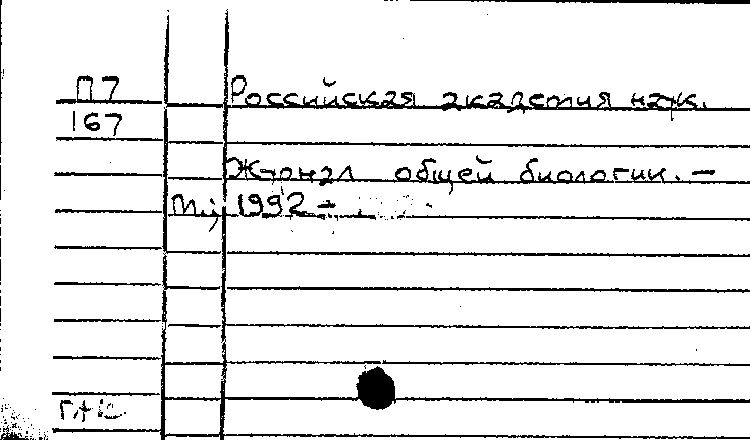 П7
Российская академия наук.
167
Журнал общей биологии. -
М.; 1992 -